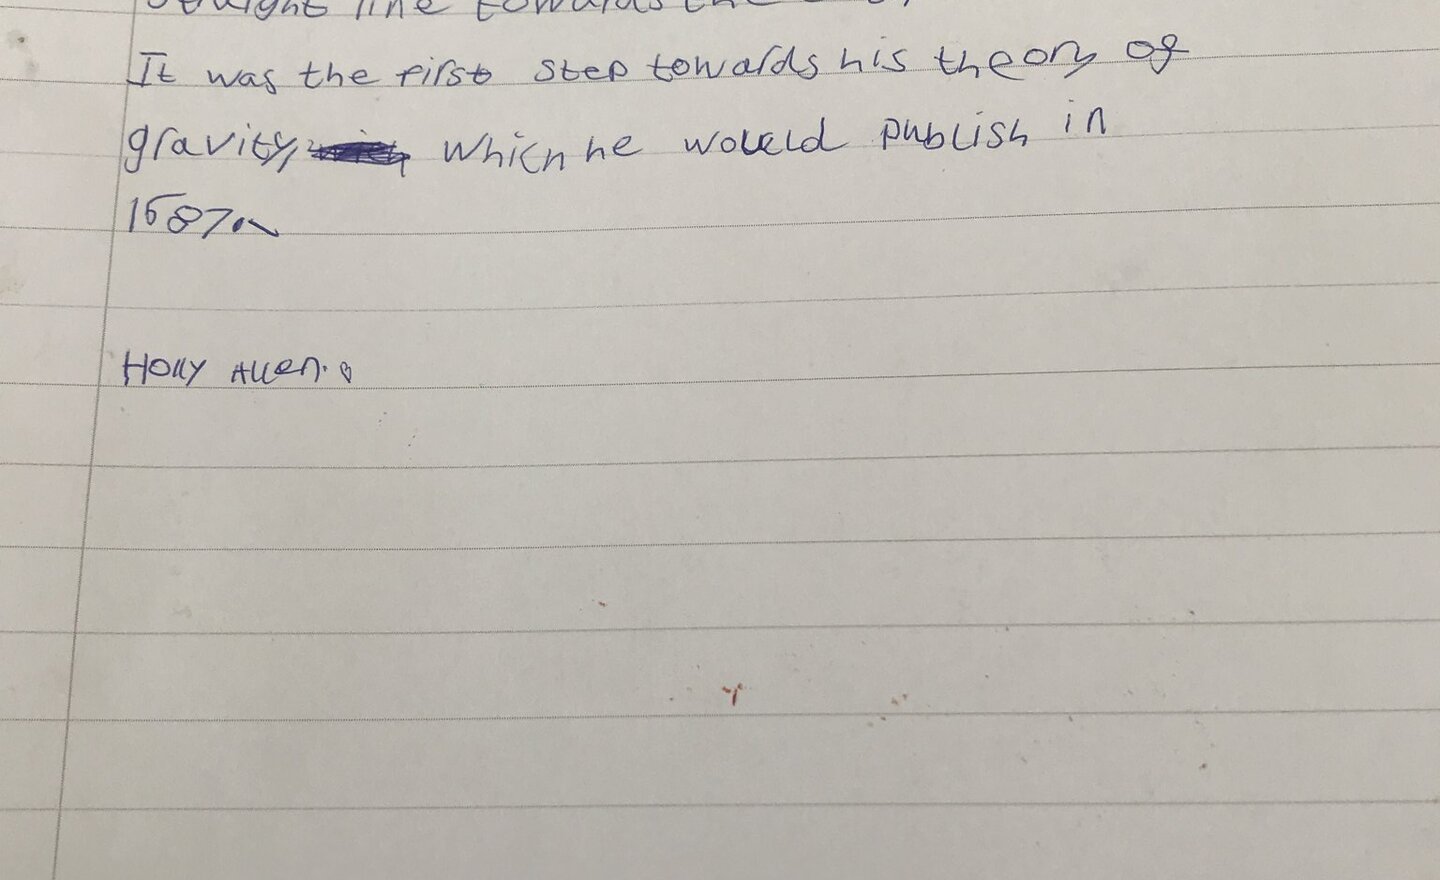 straight line towards the
It was the first step towards his theory of
gravity, which he would publish in
1687.
Holly Allen.